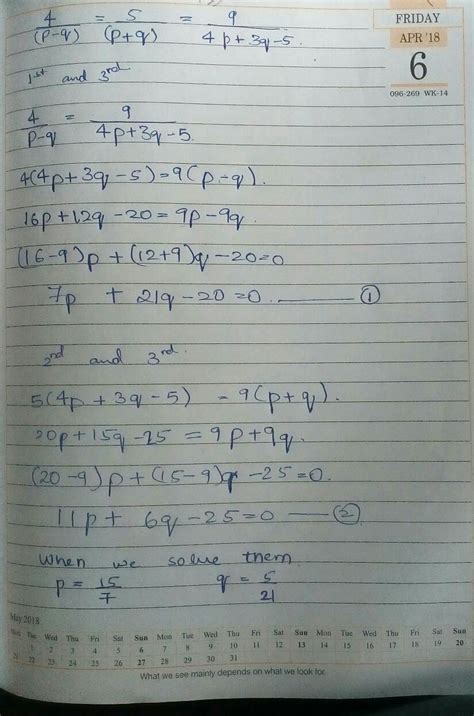 4/(p-q) = 5/(p+q) = 9/4p+3q-5
FRIDAY
APR '18
6
096-269 WK-14
1st and 3rd
4/p-q = 9/4p+3q-5
4(4p+3q-5)=9(p-q).
16p+12q-20=9p-9q
(16-9)p+(12+9)q-20=0
7p + 21q-20=0 ①
2nd and 3rd.
5(4p+3q-5) = 9(p+q).
20p+15q-25 = 9p+9q
(20-9)p+(15-9)q-25=0.
11p+ 6q-25=0 — ②
When we solve them
p = 15/7 q = 5/21
May 2018
Tue Wed Thu Fri Sat Sun Mon Tue Wed Thu Fri Sat Sun Mon Tue Wed Thu Fri Sat Sun
1 2 3 4 5 6 7 8 9 10 11 12 13 14 15 16 17 18 19 20
22 23 24 25 26 27 28 29 30 31
What we see mainly depends on what we look for.